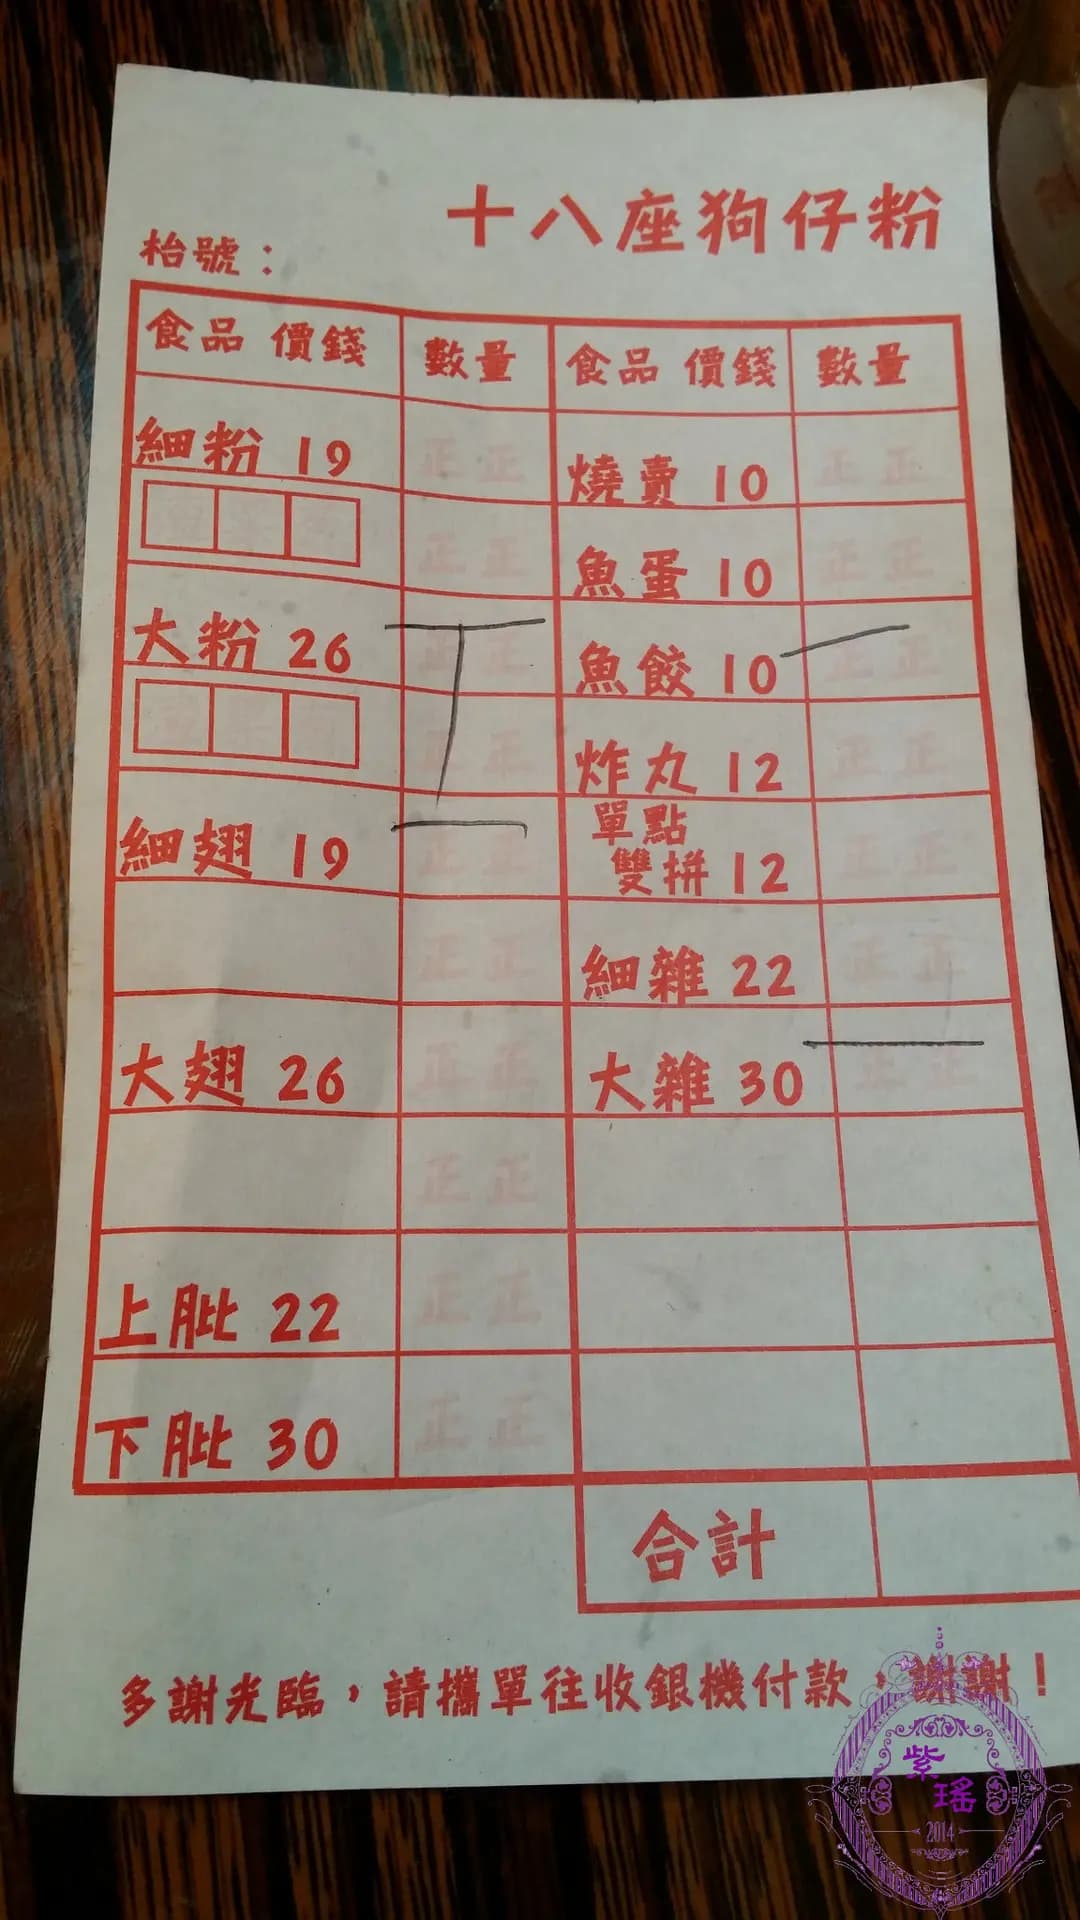 十八座狗仔粉
枱號：
食品 價錢 數量 食品 價錢 數量
細粉 19 正正 燒賣 10 正正
正正 魚蛋 10 正正
大粉 26 正正 魚餃 10 正正
正正 炸丸 12 正正
細翅 19 正正 單點
雙拼 12 正正
正正 細雜 22 正正
大翅 26 正正 大雜 30 正正
正正
上肶 22 正正
下肶 30 正正
合計
多謝光臨，請攜單往收銀機付款，謝謝！
紫
瑤
2014